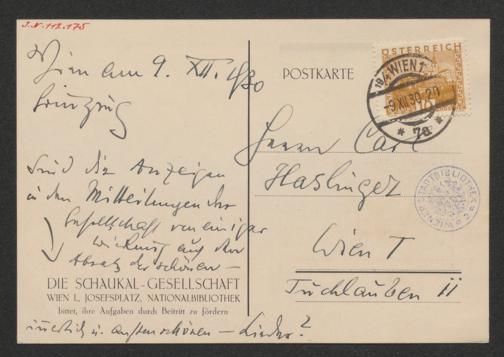 J.N. 112.175
Wien am 9. XII. 1930
Grinzing
Sind die Anzeigen
in den Mitteilungen der
Gesellschaft von einiger
Wirkung auf den
Absatz der schönen —
DIE SCHAUKAL-GESELLSCHAFT
WIEN I., JOSEFSPLATZ, NATIONALBIBLIOTHEK
bittet, ihre Aufgaben durch Beitritt zu fördern
innerlich u. außen schönen — Lieder?
POSTKARTE
ÖSTERREICH
WIEN 1
-9.XII.30.20
* 7a *
Herrn Carl
Haslinger
Wien I
Tuchlauben 11
STADTBIBLIOTHEK
WIENER